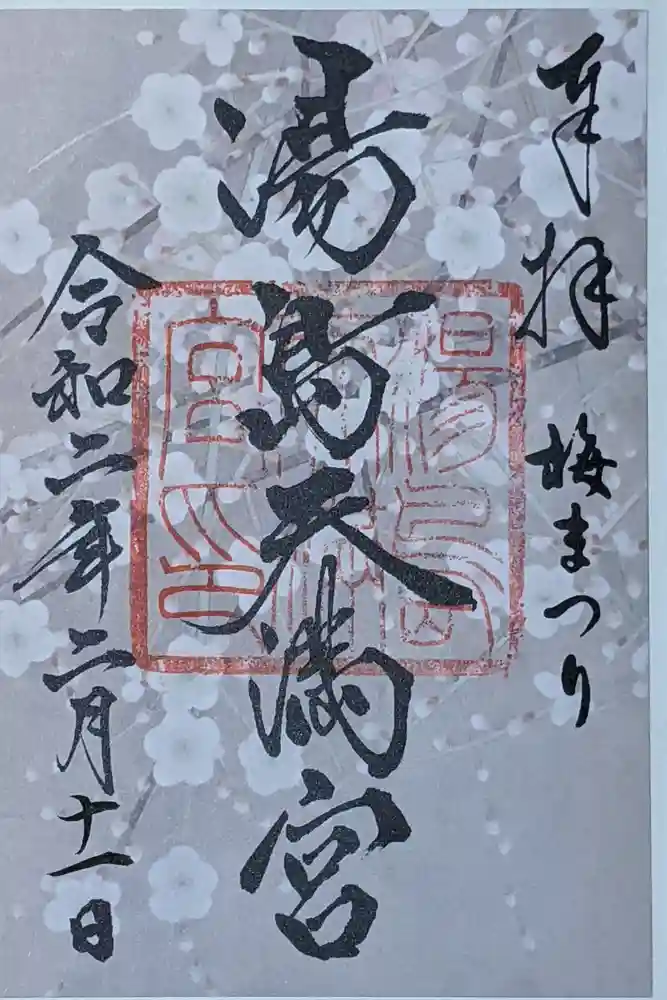 奉拝 梅まつり
湯島天満宮
令和二年二月十一日
湯島天神
宮印